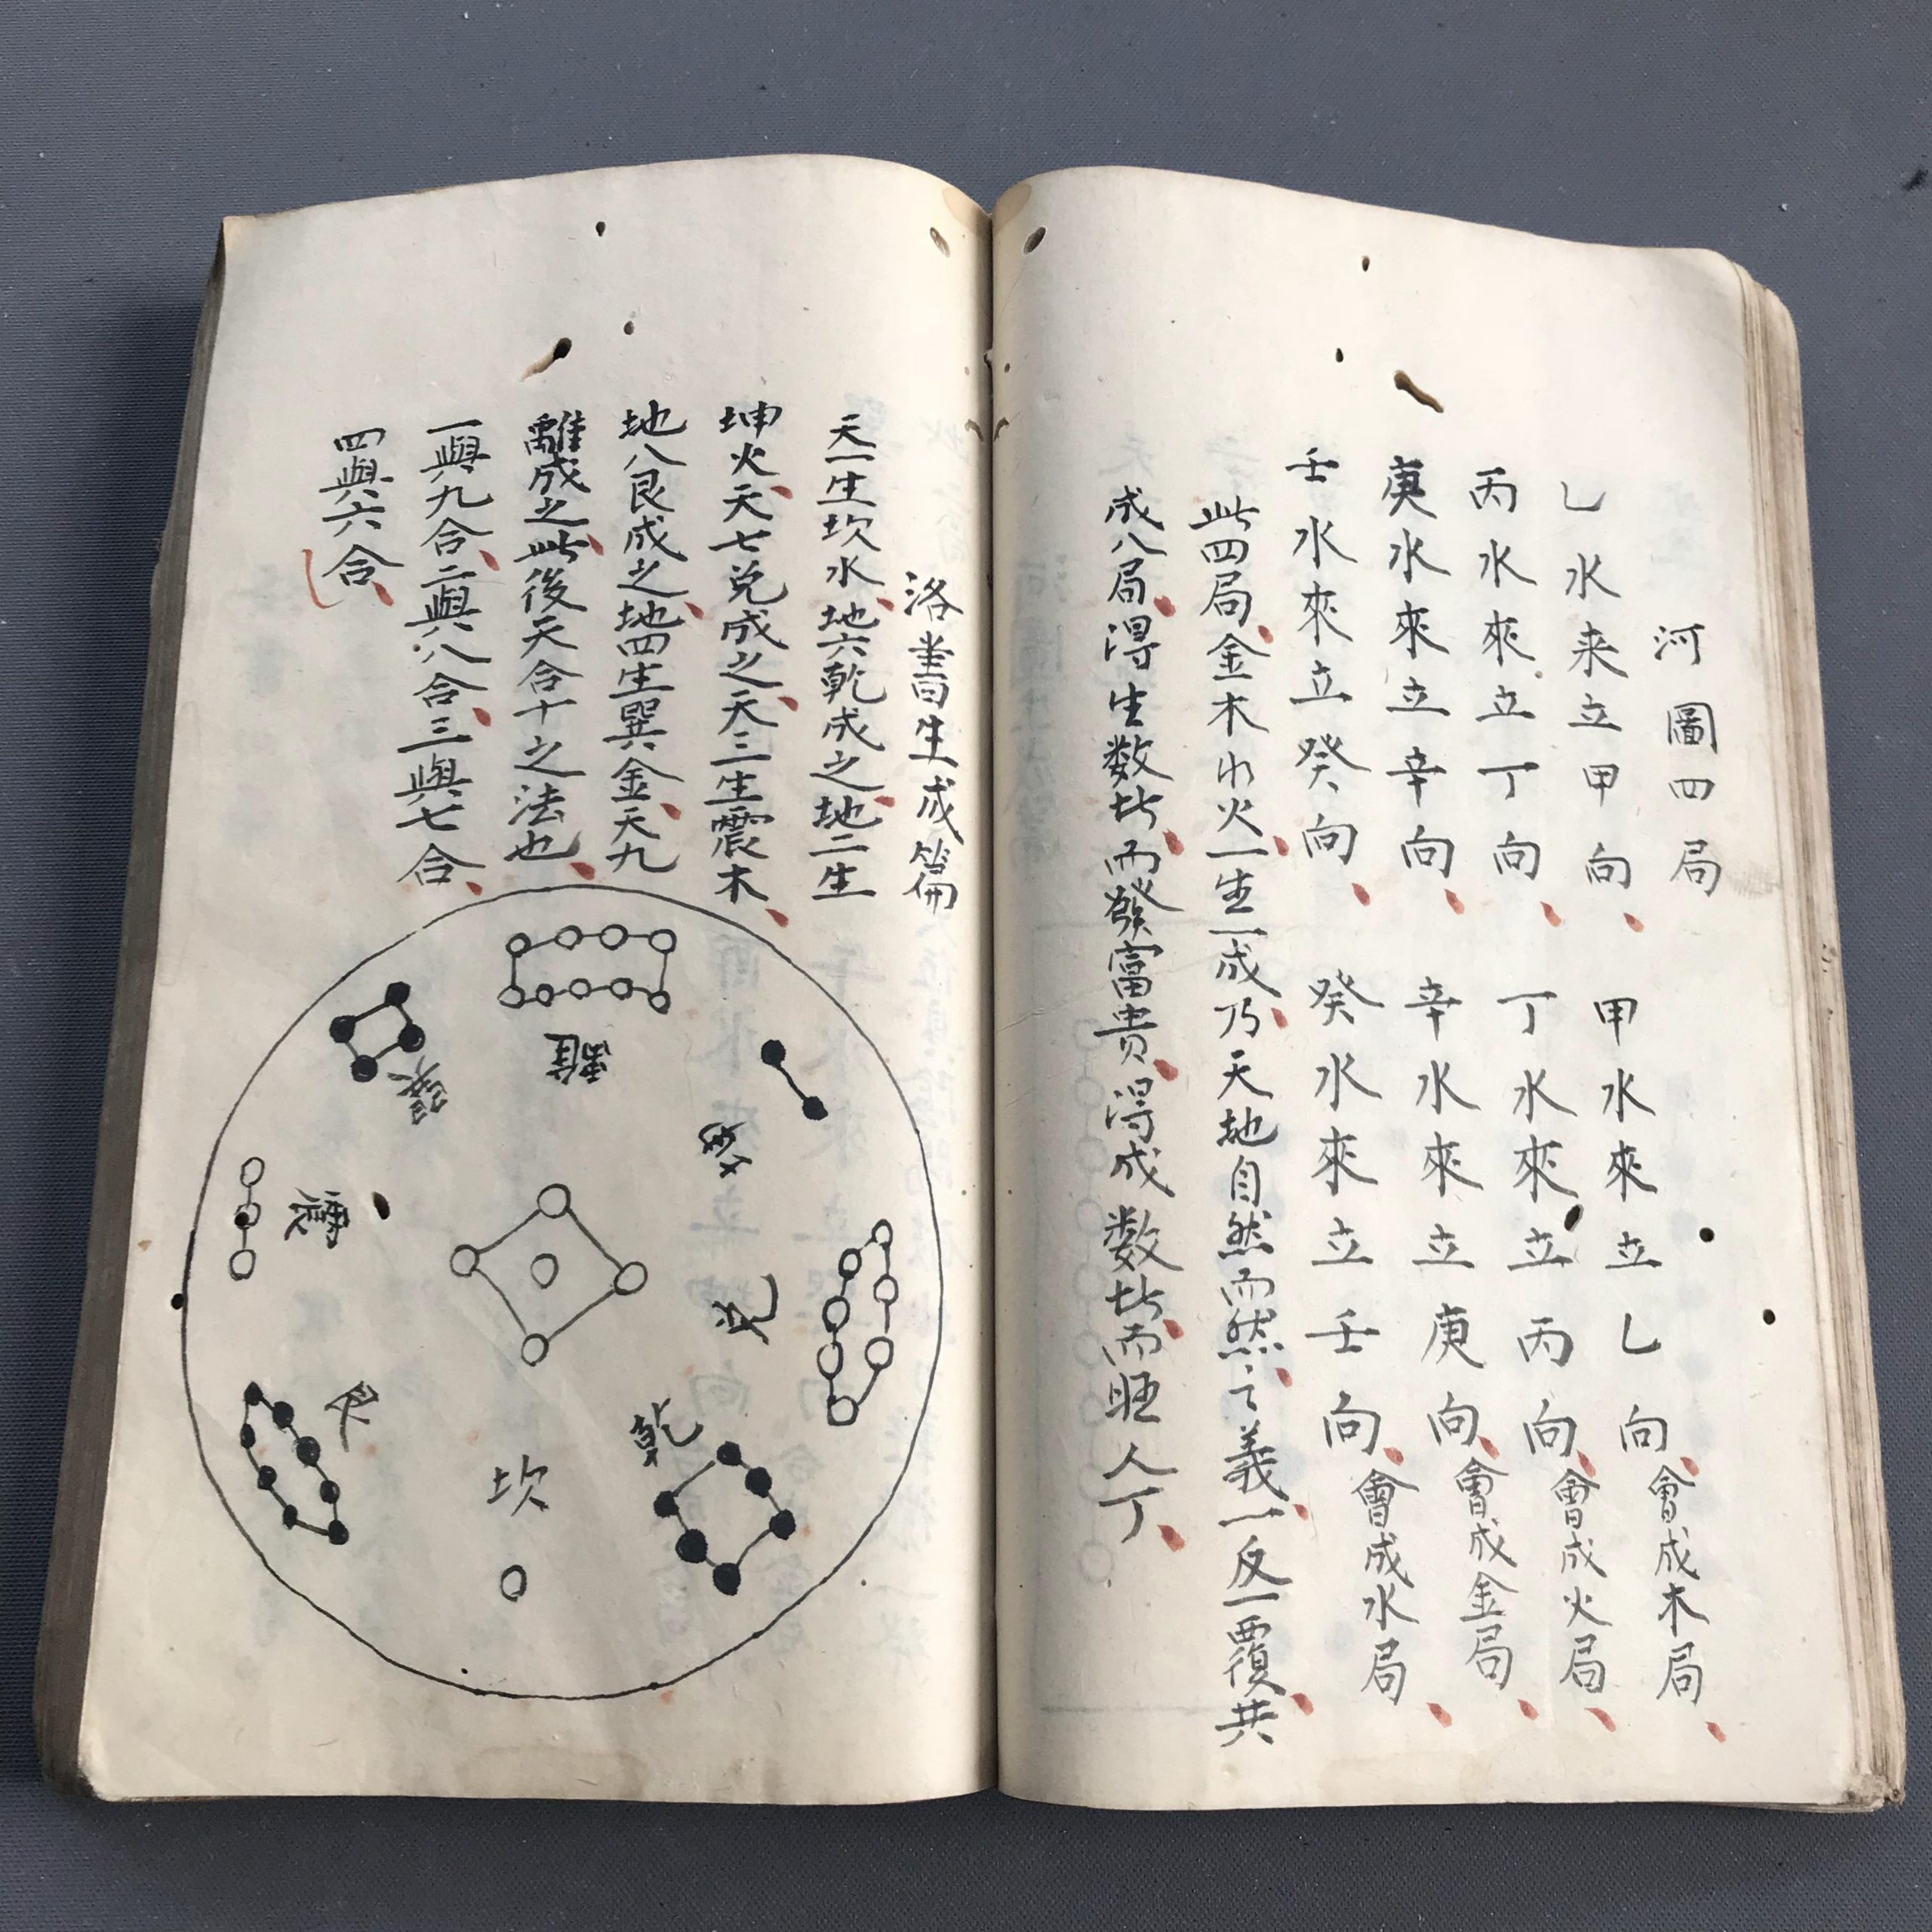 河圖四局
乙水来立甲向 甲水來立乙向會成木局
丙水來立丁向 丁水來立丙向會成火局
庚水來立辛向 辛水來立庚向會成金局
壬水來立癸向 癸水來立壬向會成水局
此四局金木水火一生一成乃天地自然而然之義一反一覆共
成八局得生数此而發富貴得成数此而旺人丁
洛書生成篇
天一生坎水地六乾成之地二生
坤火天七兌成之天三生震木
地八艮成之地四生巽金天九
離成之此後天合十之法也
一與九合二與八合三與七合
四與六合
離
巽
坤
震
兌
艮
乾
坎